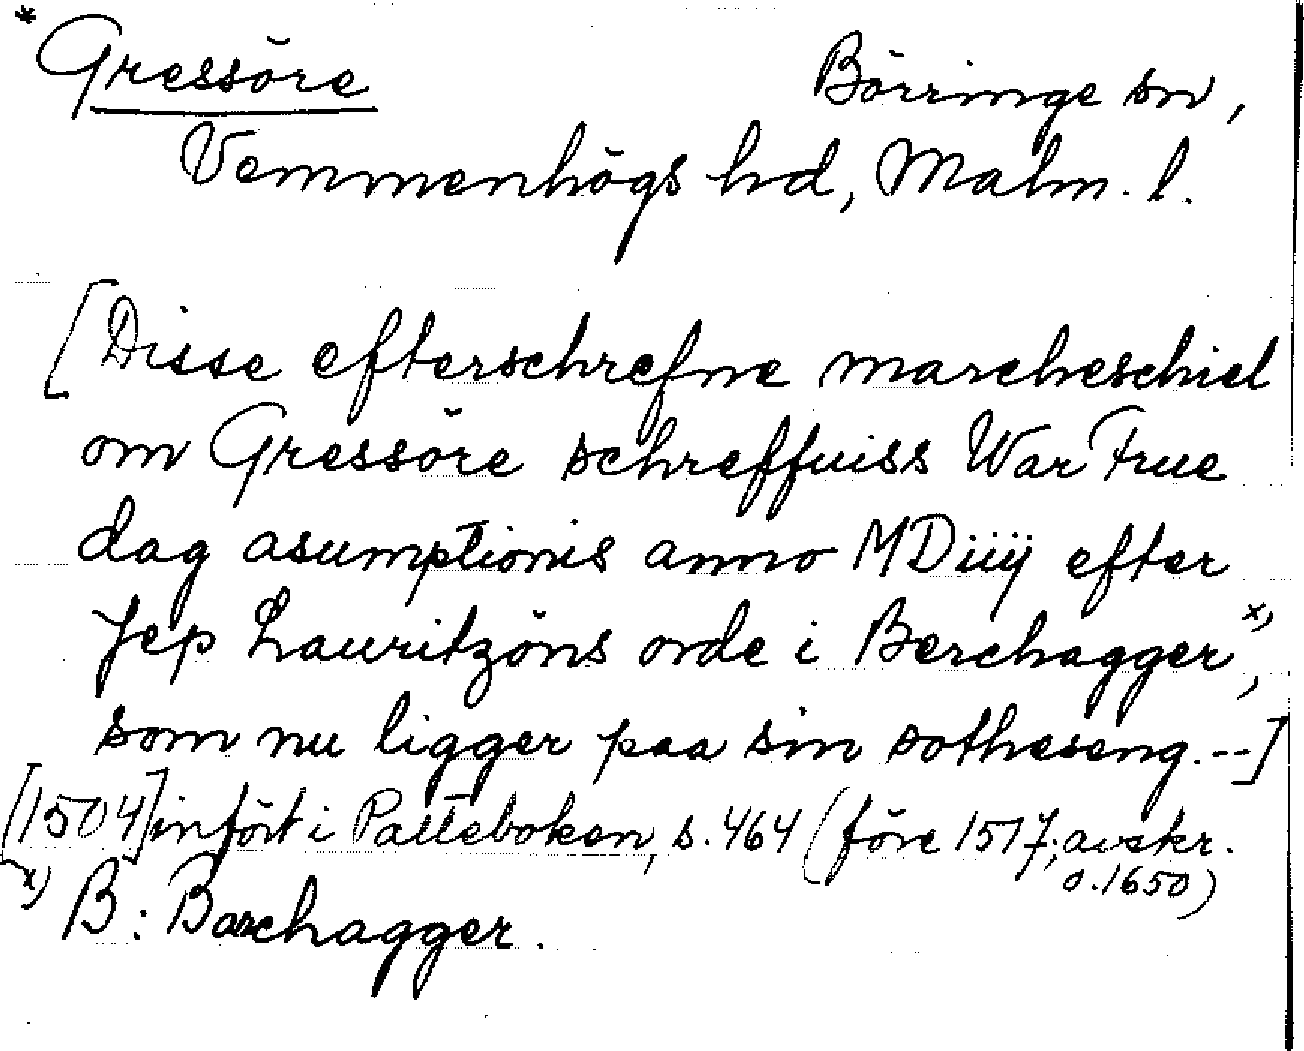 * Gressöre Börringe sn,
Vemmenhögs hd, Malm. l.
[Disse efterschrefne marcheschiel
om Gressöre schreffuiss War Frue
dag asumptionis anno MDiiij efter
Jep Lauritzöns orde i Berchagger x),
som nu ligger paa sin sotheseng.--]
[1504] infört i Palteboken, s. 464 (före 1517; avskr.
o. 1650)
x) B: Barchagger.